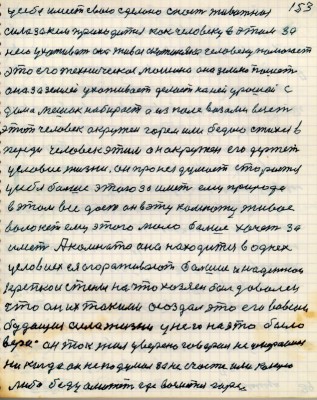 153
у себя имеет свою сделано скот животная
сила за кем приходится как человеку в этим за
него ухаживат она живая скотинка человеку помогает
это его техническая машина она землю пашет
она за землей ухаживает делает на ней урожай с
дома мешок набирает а из поле возами везет
этот человек окружен горем или бедою стихев
переди человек этим он окружен его держет
условие жизни он про не думает старается
у себя больше этого заиметь ему природа
в этом все дает он в эту комнату живое
волокет ему этого мало больше хочет за
иметь А комната она находится в одних
условиях её огораживают большие и надежные
крепкой стены на что хозяен был доволен
что он их такими создал это его вовсем
будущия сила жизни у него на это было
вера он так жил уверено говорил не умираем
никогда он не подумал за не счастье или какую
либо беду а метит где возмется горе